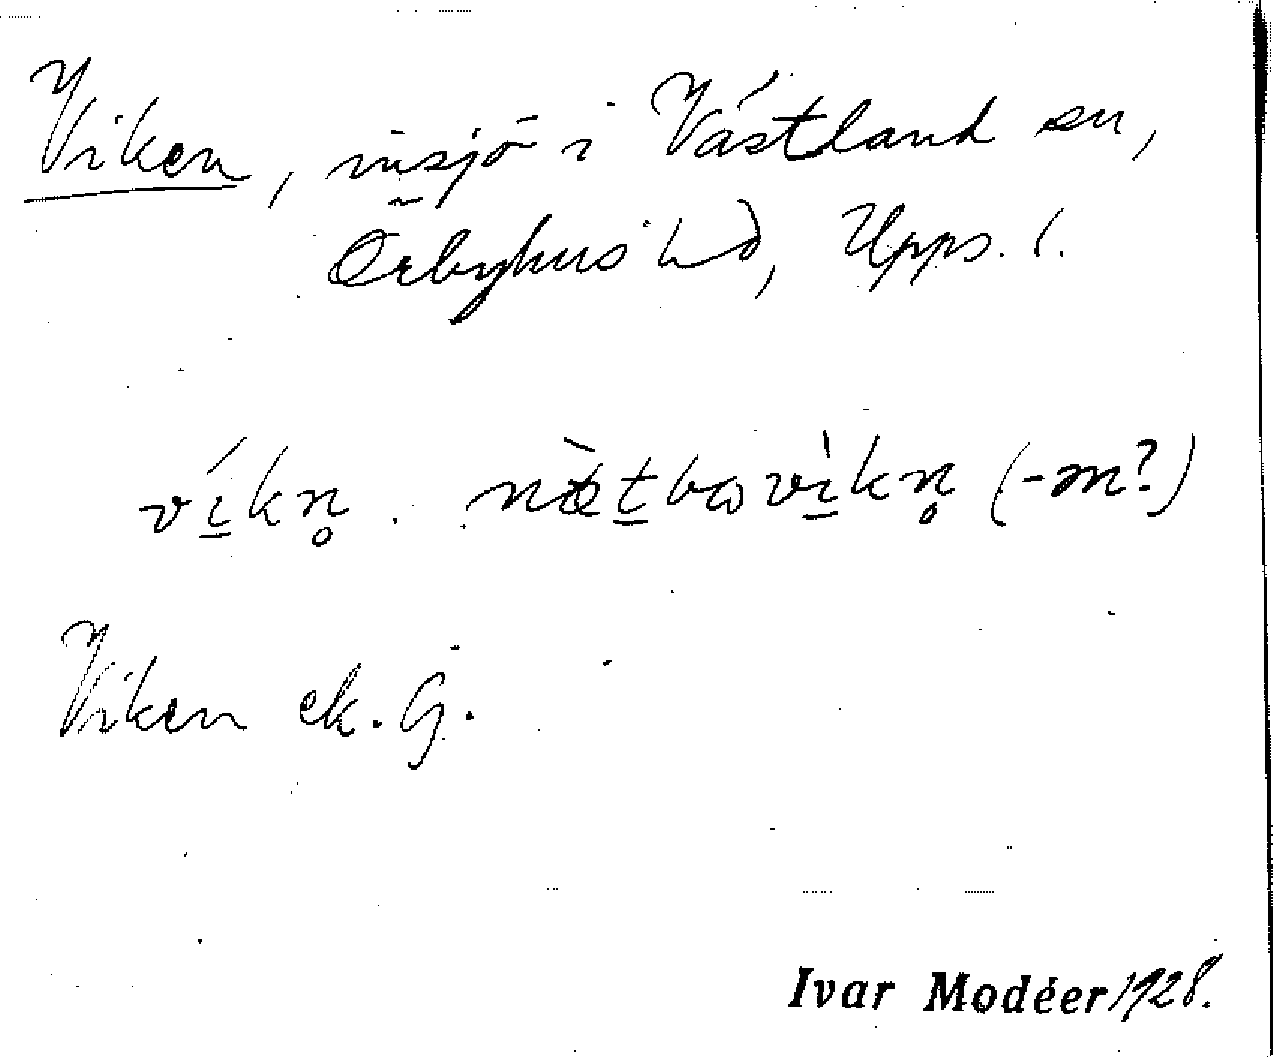 Viken, insjö i Västland sn,
Örbyhus hd, Upps. l.
ví̱kn̥. nœ̀ṯbovì̱kn̥ (-m?)
Viken ek. G.
Ivar Modéer 1928.